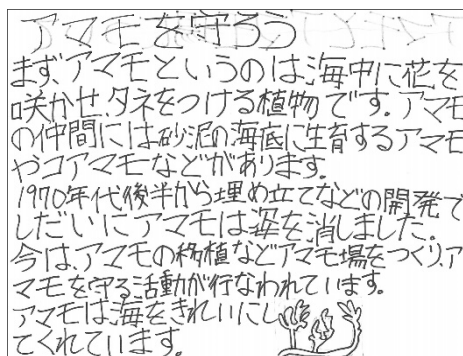 アマモを守ろう
まずアマモというのは海中に花を
咲かせ、タネをつける植物です。アマモ
の仲間には砂泥の海底に生育するアマモ
やコアマモなどがあります。
1970年代後半から埋め立てなどの開発で
しだいにアマモは姿を消しました。
今は、アマモの移植などアマモ場をつくり、ア
マモを守る活動が行なわれています。
アマモは海をきれいにし
てくれています。